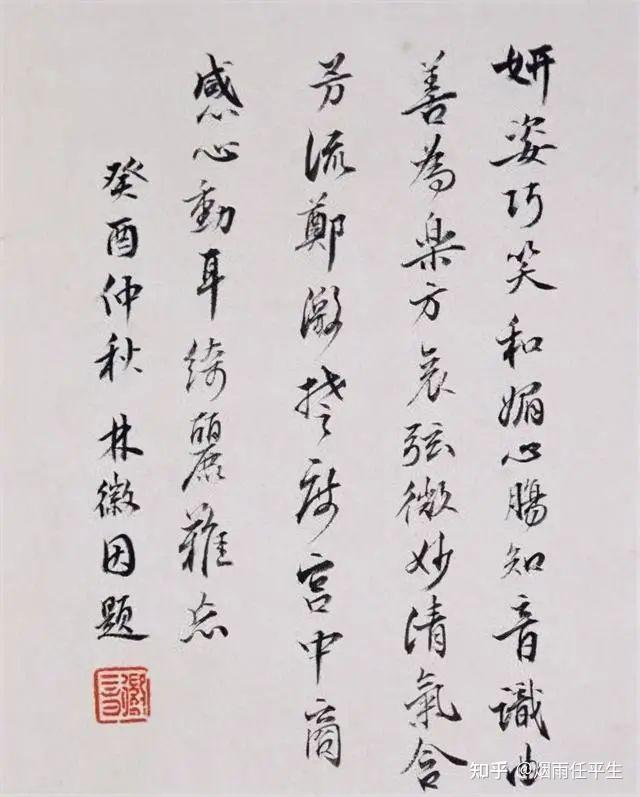 妍姿巧笑和媚心腸知音識曲
善為楽方哀弦微妙清氣含
芳流鄭激楚度宮中商
感心動耳綺麗難忘
癸酉仲秋 林徽因題
徽音
知乎 @烟雨任平生